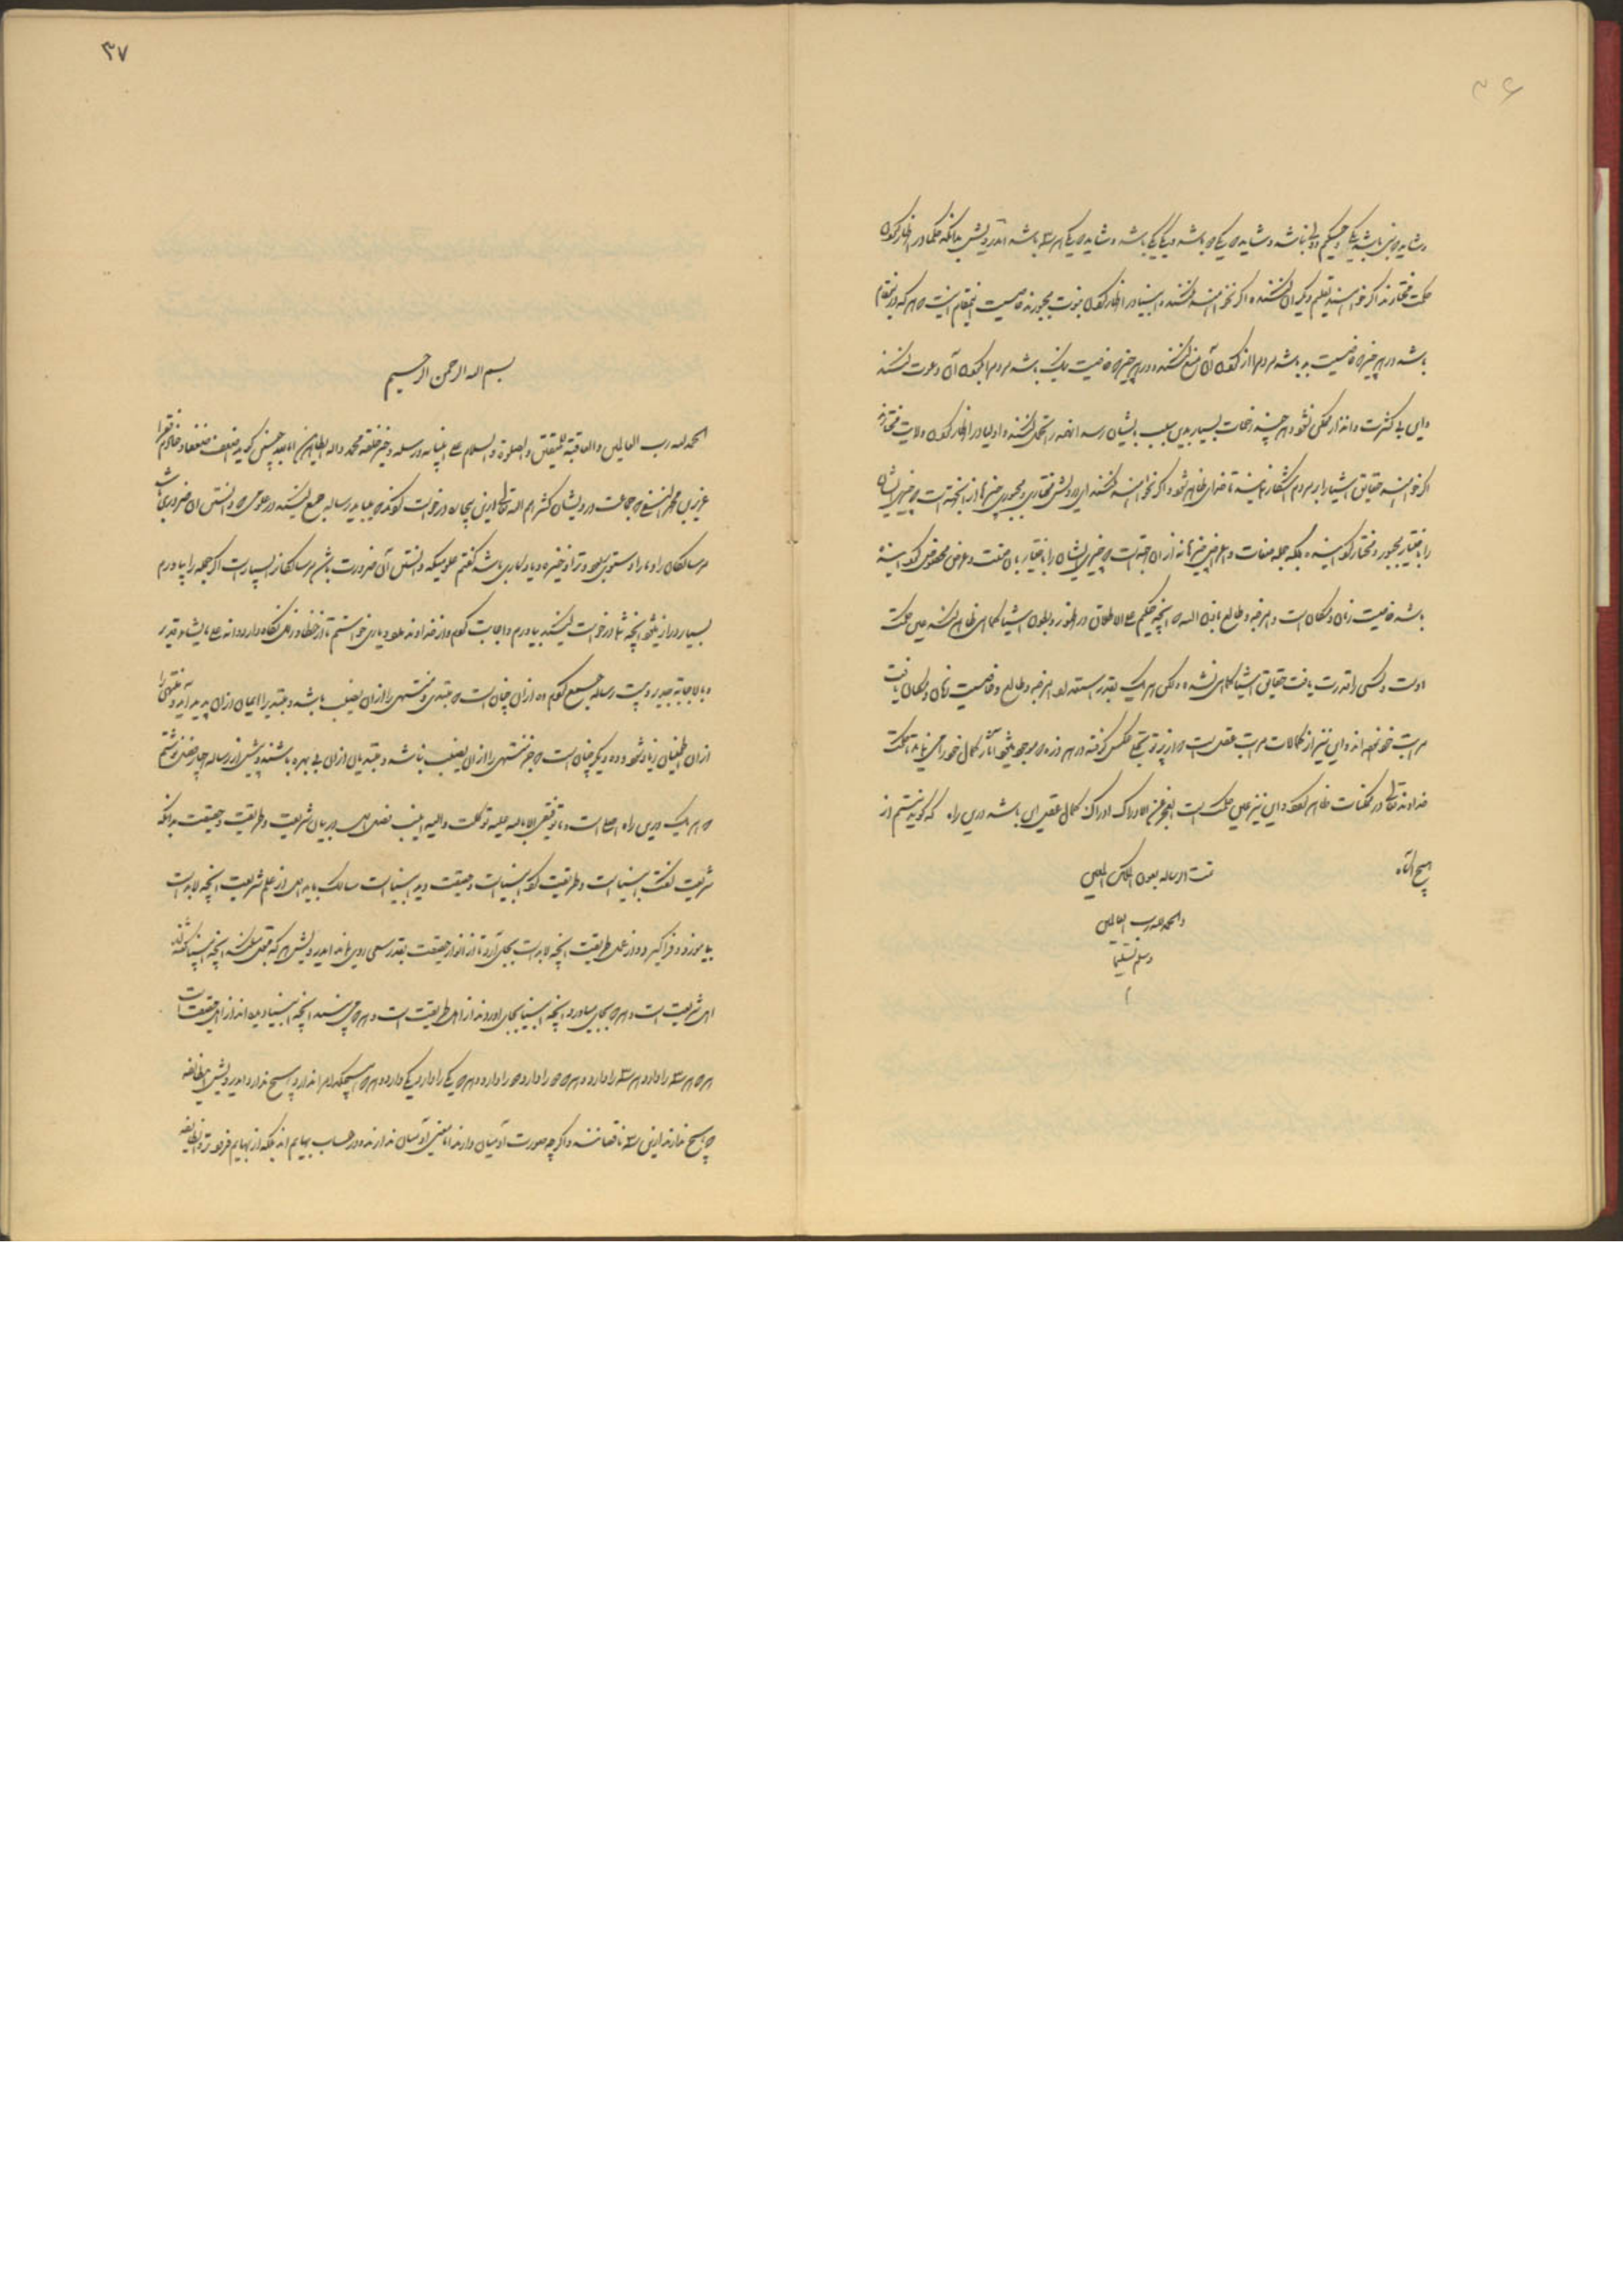 ۳۶
و شاید که نبی باشد یکی و حکیم و ولی نباشد و شاید که یکی دو باشد و دیگر یکی باشد و شاید که یکی هر سه باشد ای درویش بدانکه حکما در اظهار کردن
حکمت مختارند اگر خواهند تعلیم دیگران کنند و اگر نخواهند نکنند و انبیا در اظهار کردن نبوت مجبورند خاصیت این مقام اینست که هر که درین مقام
باشد در هر چیز که خاصیت بد باشد مردم را از کردن آن منع کنند و در هر چیز که خاصیت نیک باشد مردم را بکردن آن دعوت کنند
و این بی کثرت و انذار ممکن نشود و هر چند زحمات بسیار بدین سبب بایشان رسد آنهمه را تحمل کنند و اولیا در اظهار کردن ولایت مختارند
اگر خواهند حقایق اشیا را بر مردم آشکارا نمایند تا خدای ظاهر شود و اگر نخواهند نکنند ای درویش مختاری و مجبوری چیزها از آن جهت است که چیزی ایشان
را باختیار مجبور و مختار گردانیده بلکه جمله صفات و اعراض چیزها نه از آن جهت است که چیزی ایشان را باختیار بآن صفت و عرض مخصوص گردانیده
باشد خاصیت زمان و مکان است و امزجه و طالع باذن الله که آنچه حکیم علی الاطلاق در ظهور و بطون اشیا کماهی ظاهر کند عین حکمت
اوست و کسی را قدرت یافت حقایق اشیا کماهی نشده ولکن هر یک بقدر استعداد امزجه و طالع و خاصیت زمان و مکان یافت
مراتب خود نموده اند و این نیز از کمالات مراتب عقلست که از پرتو تجلی عکس گرفته در هر ذره موجود میشود آثار کمال خود را می نماید تا حکمت
خداوند تعالی در ممکنات ظاهر گردد و این نیز عین حکمت است العجز عن درک الادراک ادراک کمال عقل این باشد درین راه که گوید نیستم از
هیچ آگاه
تمت الرساله بعون الملک المعین
والحمدلله رب العالمین
وسلم تسلیما
۳۷
بسم الله الرحمن الرحیم
الحمدلله رب العالمین والعاقبة للمتقین والصلوة والسلام علی انبیائه ورسله و خیر خلقه محمد و آله الطاهرین اما بعد چنین گوید اضعف ضعفا و خادم فقرا
عزیز بن محمد النسفی که جماعت درویشان کثرهم الله تعالی ازین بیچاره درخواست کردند که میباید رساله جمع کنید در علومی که دانستن آن ضروری باشد
مر سالکان را و ما را دستوری بود و ترا ذخیره و یادگاری باشد گفتم علومی که دانستن آن ضرورت باشد مر سالکان را بسیارست اگر جمله را بیاورم
بسیار دراز شود آنچه شما درخواست کنید بیاورم و اجابت کردم و از خداوند مدد و یاری خواستم تا از خطا و زلل نگاه دارد و انه علی ما یشاء قدیر
و بالاجابة جدیر و بیست رساله جمع کردم ده از آن چنان است که مبتدی و منتهی را از آن نصیب باشد و مبتدی را ایمان از آن پدید آید و منتهی را
از آن اطمینان زیاد شود و ده دیگر چنان است که جز منتهی را از آن نصیب نباشد و مبتدیان از آن بی بهره باشند و پیش از رساله چهار فصل نوشتم
که هر یک درین راه اصلی است و ما توفیقی الا بالله علیه توکلت و الیه انیب فصل اول در بیان شریعت و طریقت و حقیقت بدانکه
شریعت گفت انبیاست و طریقت کرد انبیاست و حقیقت دید انبیاست سالک باید اول از علم شریعت آنچه لابد است
بیاموزد و فراگیرد و از عمل طریقت آنچه لابد است بجای آورد تا از انوار حقیقت بقدر سعی او روی نماید ای درویش هر که قبول میکند آنچه انبیا گفته اند
اهل شریعت است و هر که بجای میآورد آنچه انبیا بجای آوردند از اهل طریقت است و هر که می بیند آنچه انبیا دیده اند از اهل حقیقت است
هر که هر سه را دارد هر سه را دارد و هر که دو را دارد دو را دارد و هر که یکی را دارد یکی دارد و هر که هیچکدام را ندارد هیچ ندارد ای درویش این طایفه
که هیچ ندارند ازین سه ناقصانند و اگر چه صورت آدمیان دارند اما معنی آدمیان ندارند و در حساب بهایم اند بلکه از بهایم فروتر